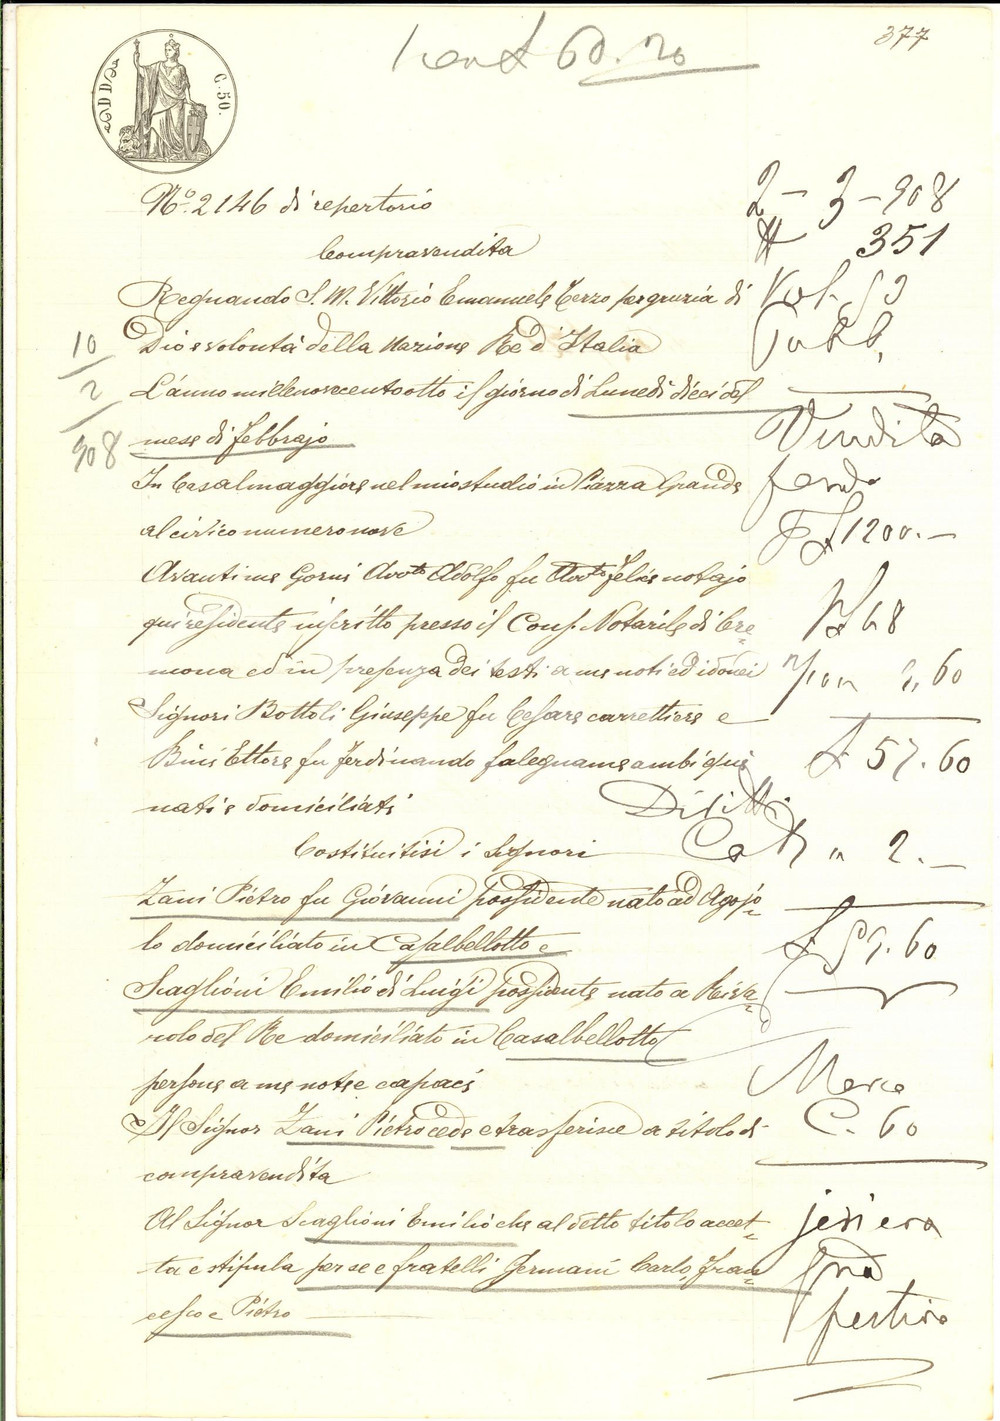 377
C. 50.
No. 2146 di repertorio
2 - 3 - 908
Compravendita
351
Regnando S. M. Vittorio Emanuele Terzo per grazia di
Dio e volontà della Nazione Re d'Italia
10
2
908
L'anno millenovecentootto il giorno di Lunedì dieci del
mese di febbrajo
Vendita
In Casalmaggiore nel mio studio in Piazza Grande
al civico numero nove
1200.-
Avanti me Gorni Avvto Adolfo fu Avvto Felice notajo
qui residente inscritto presso il Cons. Notarile di Cre=
68
mona ed in presenza dei testi a me noti ed idonei
Signori Bottoli Giuseppe fu Cesare carrettiere e
Bini Ettore fu Ferdinando falegname ambi qui
£ 57.60
nati e domiciliati
Diritti
Costituitisi i Signori
2.-
Zani Pietro fu Giovanni possidente nato ad Agojo=
lo domiciliato in Casalbellotto e
£ 59.60
Scaglioni Emilio di Luigi possidente nato a Riva=
rolo del Re domiciliato in Casalbellotto
persone a me note e capaci
Il Signor Zani Pietro cede e trasferisce a titolo di
C. 60
compravendita
Al Signor Scaglioni Emilio che al detto titolo accet=
ta e stipula per se e fratelli Germani Carlo, Fran=
cesco e Pietro